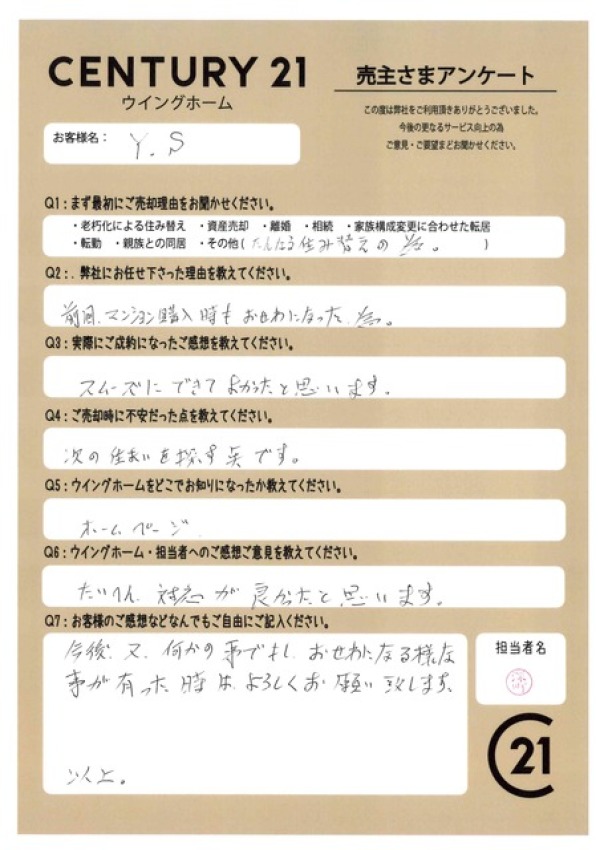 CENTURY 21
ウイングホーム
売主さまアンケート
この度は弊社をご利用頂きありがとうございました。
今後の更なるサービス向上の為
ご意見・ご要望まどお聞かせください。
お客様名： Y.S
Q1：まず最初にご売却理由をお聞かせください。
・老朽化による住み替え ・資産売却 ・離婚 ・相続 ・家族構成変更に合わせた転居
・転勤 ・親族との同居 ・その他( たんなる住み替えの為。 )
Q2：. 弊社にお任せ下さった理由を教えてください。
前回、マンション購入時もおせわになった為。
Q3：実際にご成約になったご感想を教えてください。
スムーズにできてよかったと思います。
Q4：ご売却時に不安だった点を教えてください。
次の住まいを探す点です。
Q5：ウイングホームをどこでお知りになったか教えてください。
ホームページ
Q6：ウイングホーム・担当者へのご感想ご意見を教えてください。
たいへん対応が良かったと思います。
Q7：お客様のご感想などなんでもご自由にご記入ください。
今後、又、何かの事でもし、おせわになる様な
事が有った時は、よろしくお願い致します。
以上。
担当者名
C21